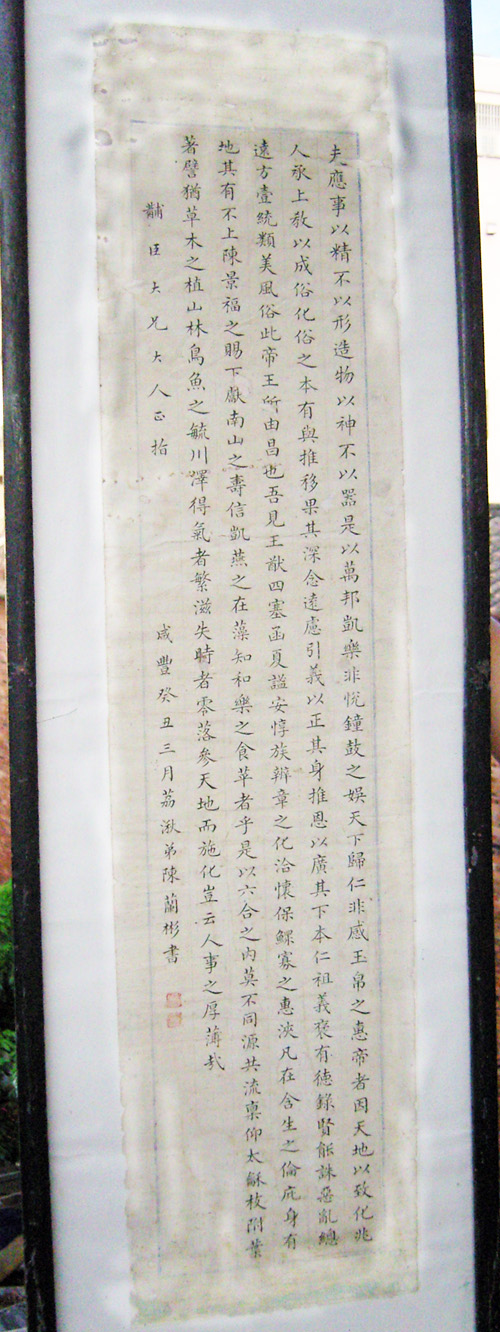 夫應事以精不以形造物以神不以器是以萬邦凱樂非悅鐘鼓之娛天下歸仁非感玉帛之惠帝者因天地以致化兆
人承上教以成俗化俗之本有與推移果其深念遠慮引義以正其身推恩以廣其下本仁祖義褒有德錄賢能誅惡亂總
遠方壹統類美風俗此帝王所由昌也吾見王猷四塞函夏謐安惇族辨章之化洽懷保鰥寡之惠浹凡在含生之倫庇身有
地其有不上陳景福之賜下獻南山之壽信凱燕之在藻知和樂之食苹者乎是以六合之內莫不同源共流稟仰太龢枝附葉
著譬猶草木之植山林鳥魚之毓川澤得氣者繁滋失時者零落參天地而施化豈云人事之厚薄哉
黼臣大兄大人正拾
咸豐癸丑三月荔湫弟陳蘭彬書